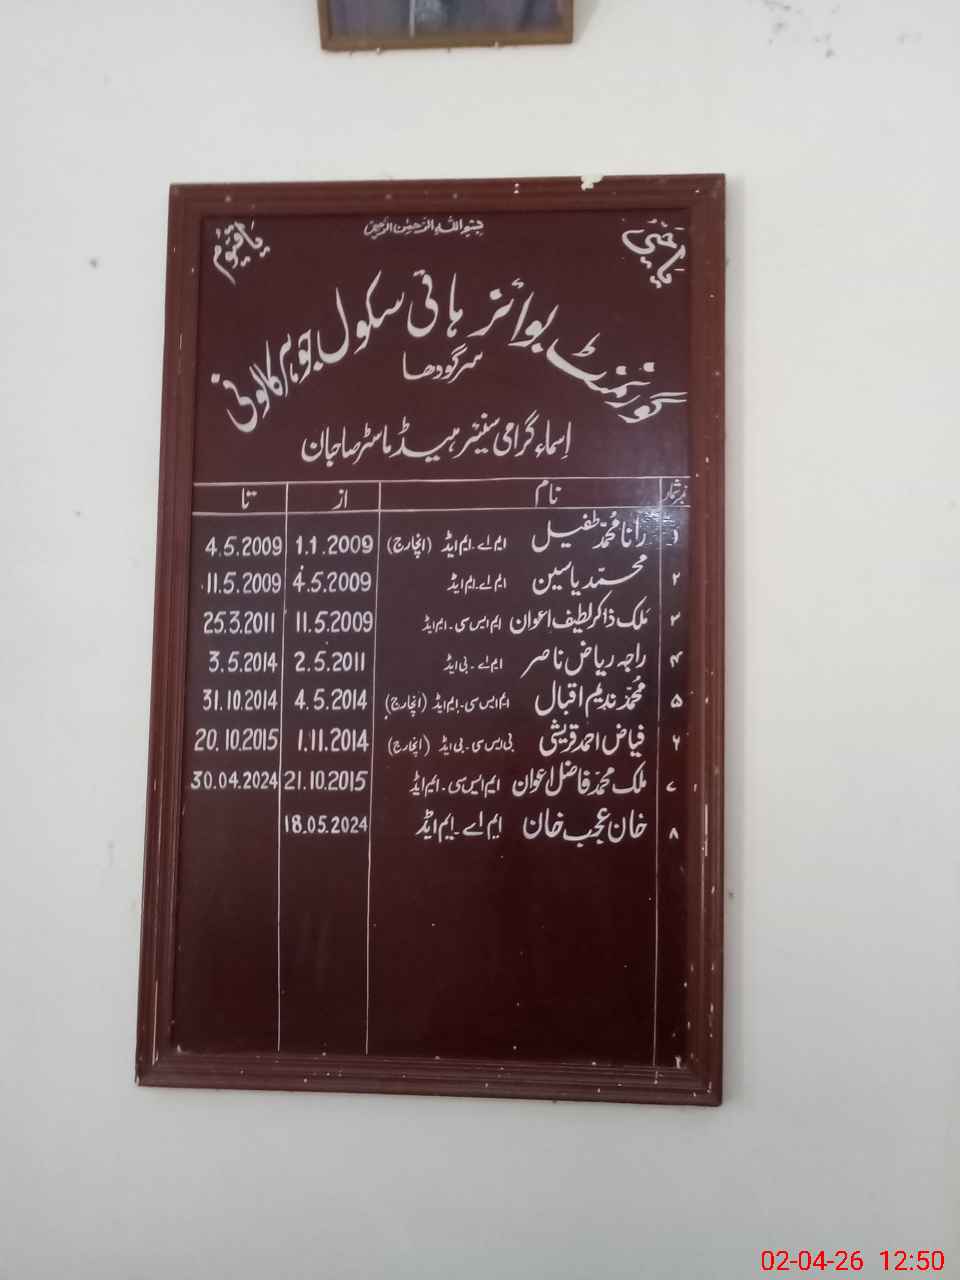 بسم اللہ الرحمن الرحیم
یا حیّ یا قیّوم
گورنمنٹ بوائز ہائی سکول جوہر کالونی
سرگودھا
اسماء گرامی سنیئر ہیڈ ماسٹر صاحبان
نمبر شمار نام از تا
۱ رانا محمّد طفیل ایم اے ۔ ایم ایڈ (انچارج) 1.1.2009 4.5.2009
۲ محمّد یاسین ایم اے ۔ ایم ایڈ 4.5.2009 11.5.2009
۳ ملک ذاکر لطیف اعوان ایم ایس سی ۔ ایم ایڈ 11.5.2009 25.3.2011
۴ راجہ ریاض ناصر ایم اے ۔ بی ایڈ 2.5.2011 3.5.2014
۵ محمّد ندیم اقبال ایم ایس سی ۔ ایم ایڈ (انچارج) 4.5.2014 31.10.2014
۶ فیاض احمد قریشی بی ایس سی ۔ بی ایڈ (انچارج) 1.11.2014 20.10.2015
۷ ملک محمّد فاضل اعوان ایم ایس سی ۔ ایم ایڈ 21.10.2015 30.04.2024
۸ خان عجب خان ایم اے ۔ ایم ایڈ 18.05.2024
02-04-26 12:50